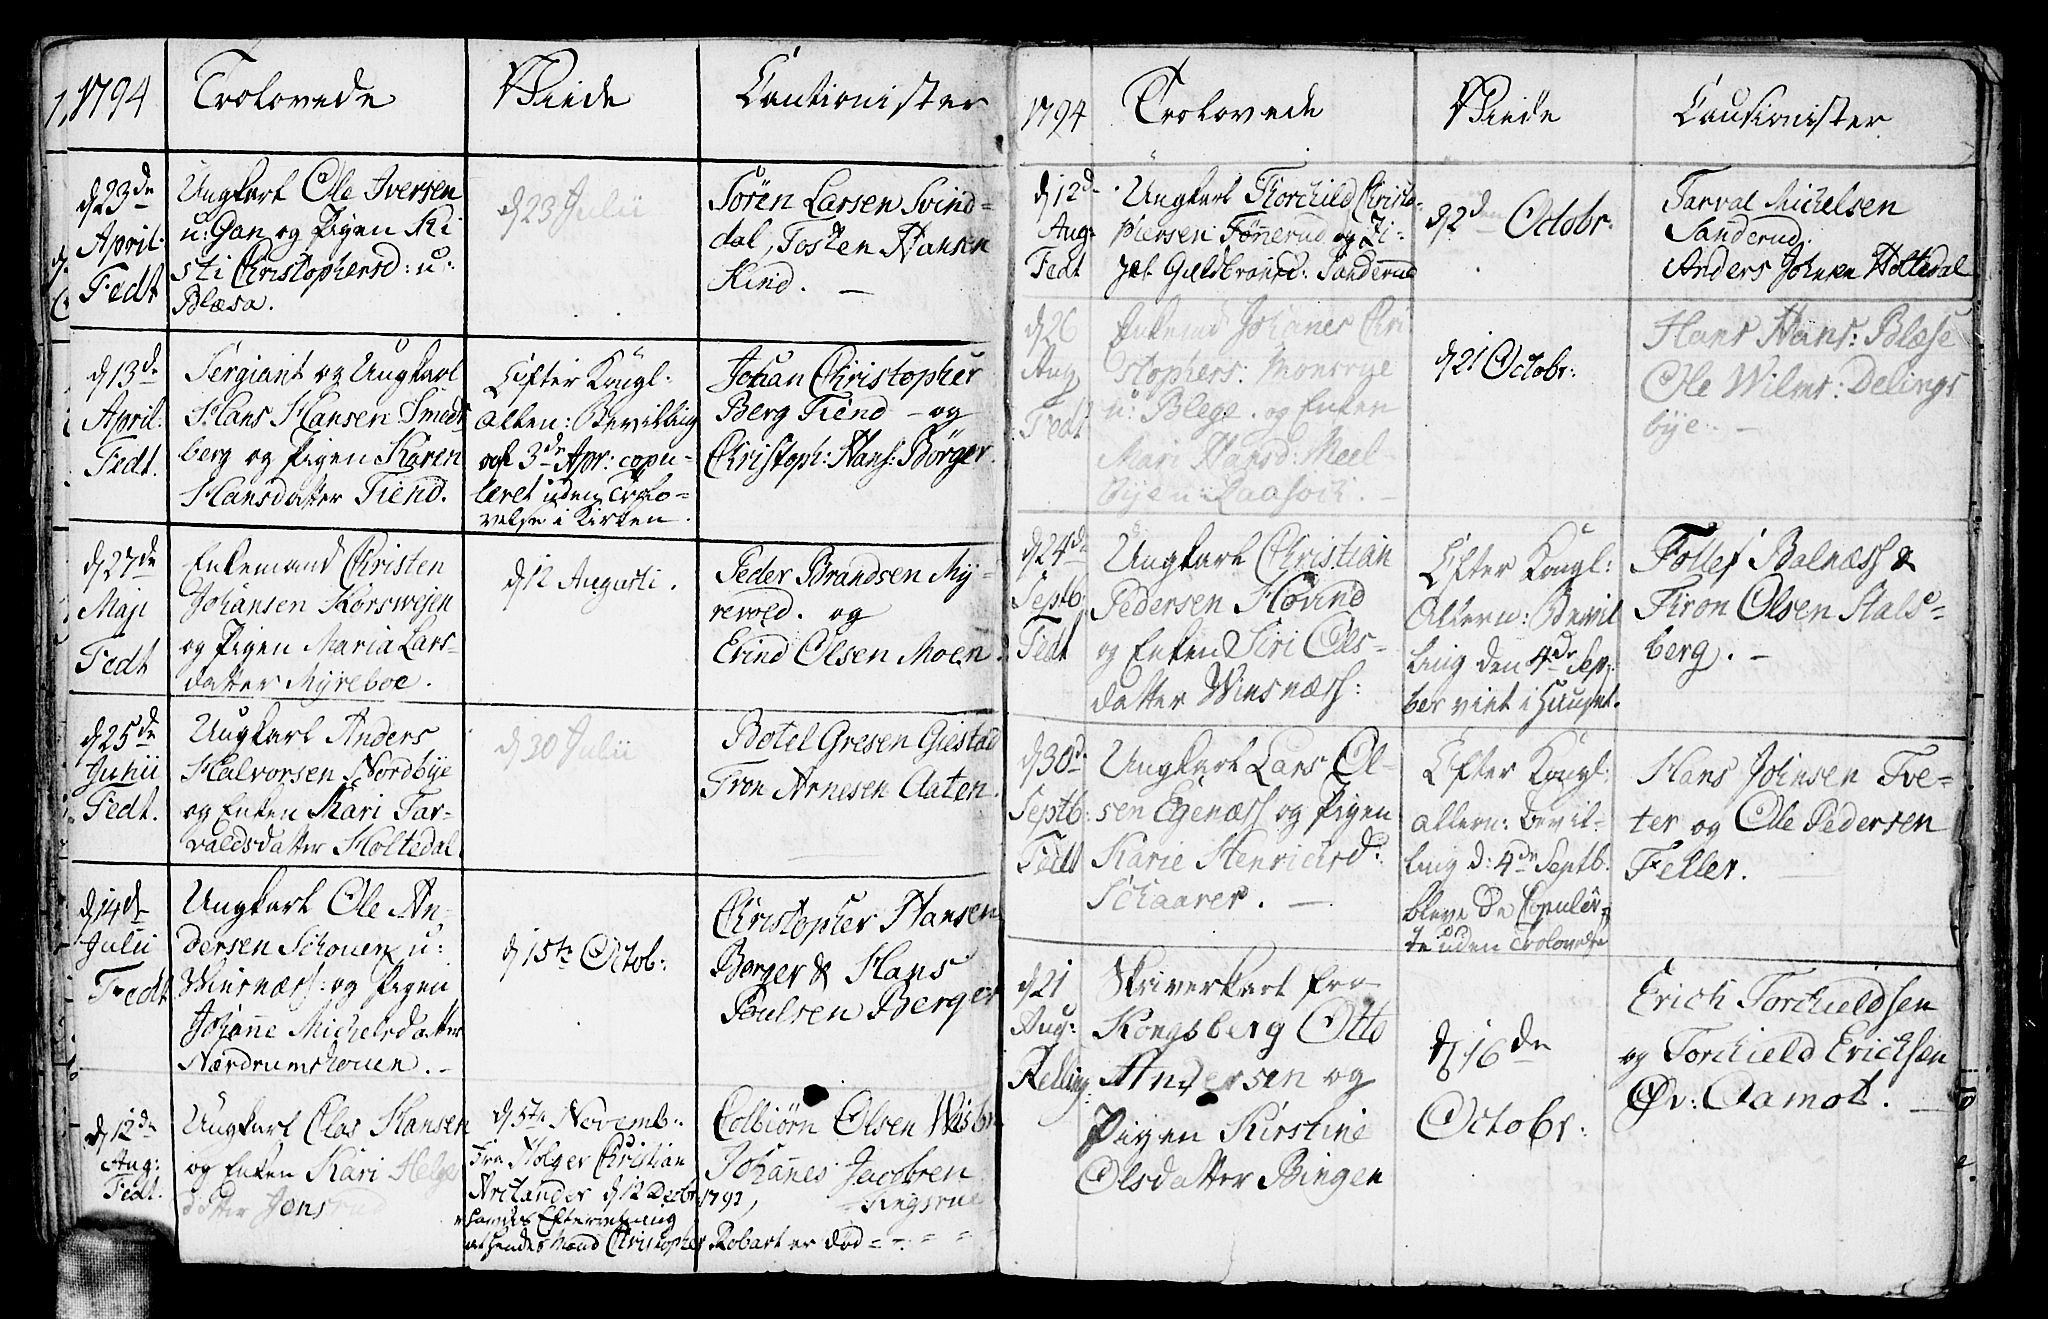 1794
Trolovede
Viede
Cautionister
d 23de
April
Fedt
Ungkarl Ole Iversen
u: Gan og Pigen Ki
sti Christophersd: u:
Blæsa.
d 23 Julii
Sören Larsen Svind-
dal, Tosten Hansen
Kind. —
d 13de
April:
Fedt.
Sergiant og Ungkarl
Hans Hansen Smeds
berg og Pigen Karen
Hansdatter Tiend.
Efter Kongl:
allern: Bevilling
af 3de Apr: copu-
leret uden Trolo-
velse i Kirken.
Johan Christopher
Berg Tiend – og
Christoph: Hans: Börger.
d 27de
Maji
Fedt
Enkemand Christen
Johansen Korswejen
og Pigen Maria Lars-
datter Myreboe.
d 12 Augusti.
Peder Brandsen My-
revold. og
Erind Olsen Moen.
d 25de
Junii
Fedt.
Ungkarl Anders
Halvorsen Nordbye
og Enken Kari Tar-
valdsdatter Holtedal
d 30 Julii
Botel Gresen Giestad
Tron Arnesen Aaten.
d 14de
Julii
Fedt
Ungkarl Ole An-
dersen Schouen u:
Winsnæss: og Pigen
Johanne Michelsdatter
Nærdrumshouen. —
d 15te Octob:
Christopher Hansen
Berger & Hans
Poulsen Berger
d 12de
Aug:
Fedt.
Ungkarl Clas Hansen
og Enken Kari Helge
datter Jensrud
d 5te Novemb:
Fra Holger Christian
Arctander d 12 Decbr 1791,
havdes Efterretning
at hendes Mand Christopher Robart er död
Colbiörn Olsen
Johannes Jacobsen
Ringsrue
1794
Trolovede
Viede
Cautionister
d 12de
Aug:
Fedt
Ungkarl Thorchild Christo-
phersen Tönnerud og Zi-
Guldbrands: Sanderud
d 2den Octobr.
Tarval Michelsen
Sanderud.
Anders Johnsen Holtedal
d 26
Aug
Fedt
Enkemd Johanes Chri
stophers: Monsrye
u: Blege. og Enken
Mari Hansd: Meel-
bye u:
d 21 Octobr:
Hans Hans: Blæse
Ole Wilms: Delings
bye. –
d 24de
Septb
Fedt
Ungkarl Christian
Pedersen Hövind
og Enken Siri Ols-
datter Winsnæss:
Efter Kongl:
Allern: Bevil
ling den 4de Sep-
ber viet i Huuset.
Tollef Balnæss &
Tiron Olsen Stals-
berg. –
d 30de
Septb:
Fedt
Ungkarl Lars Ol-
sen Egenæss og Pigen
Karie Henrichsd:
Schaarer. —
Efter Kongl:
allern: Bevil-
ling d: 4de Septb:
bleve de Copuler-
te uden Trolovelse
Hans Johnsen Tve-
ter og Ole Pedersen
Feller. —
d 21
Aug:
Relling
Skriverkarl fra
Kongsberg Otto
Andersen og
Pigen Kirstine
Olsdatter Bingen
d 16de
Octobr:
Erich Torchieldsen
og Torchield Erichsen
Öv: Aamot. —